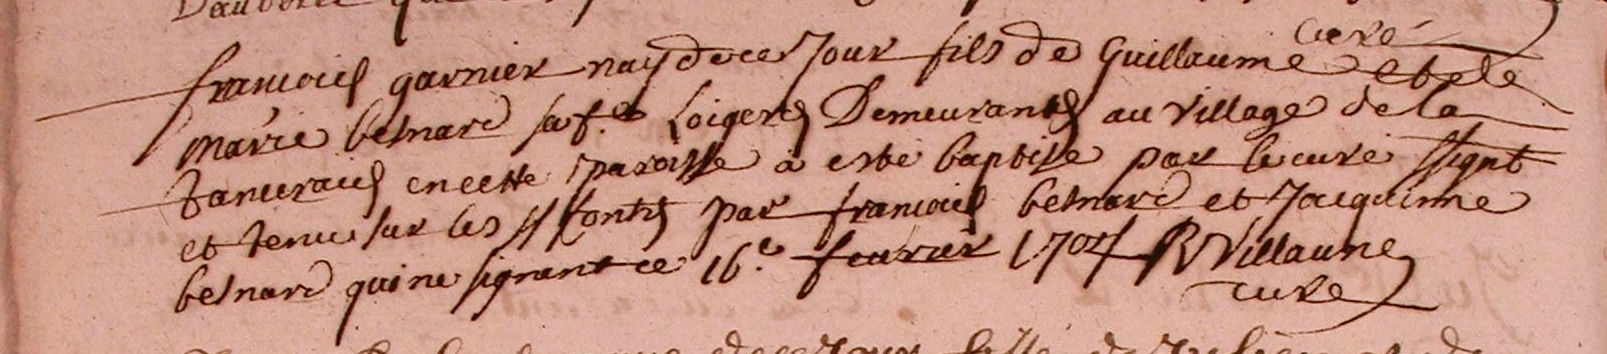 curé
francois garnier nay de ce Jour fils de Guillaume et de
marie besnard sa f.e Logers Demeurants au village de la
en cette paroisse a este baptise par le curé ssignt
et tenu sur les ffonts par francois besnard et Jacquinne
besnard qui ne signent ce 16.e feuvrier 1704 R Villaune
curé